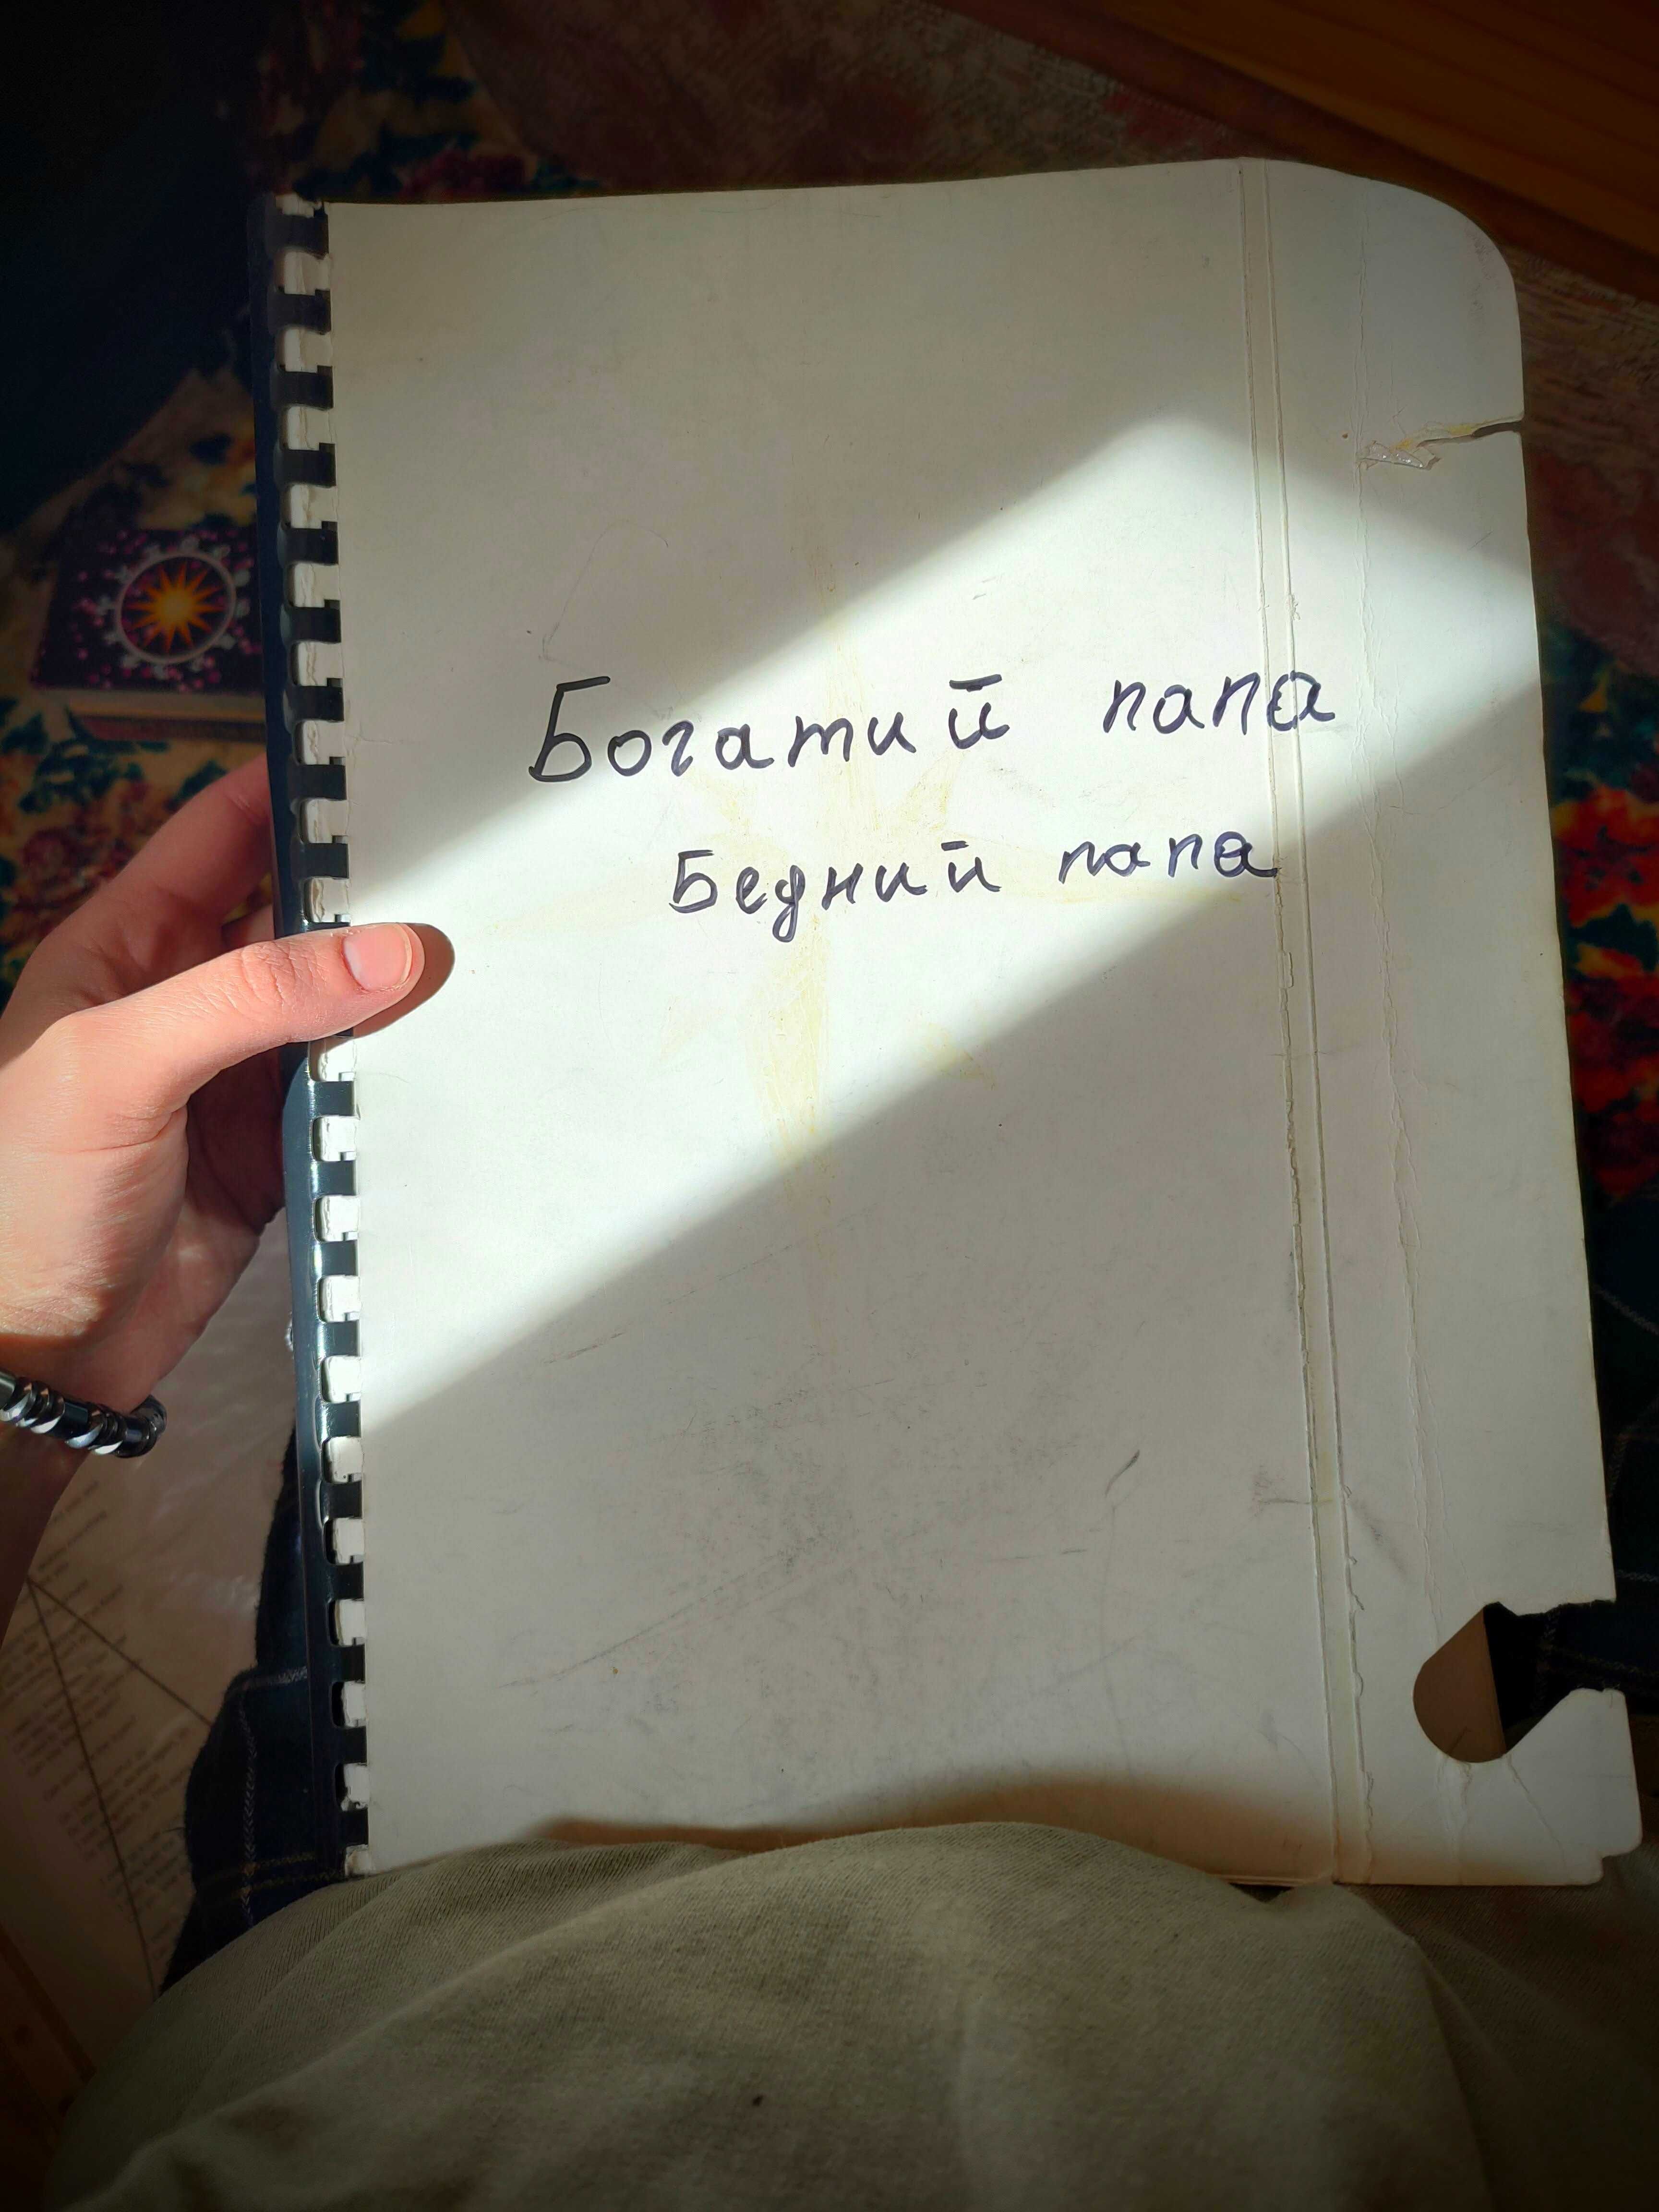 Богатий папа
Бедний папа